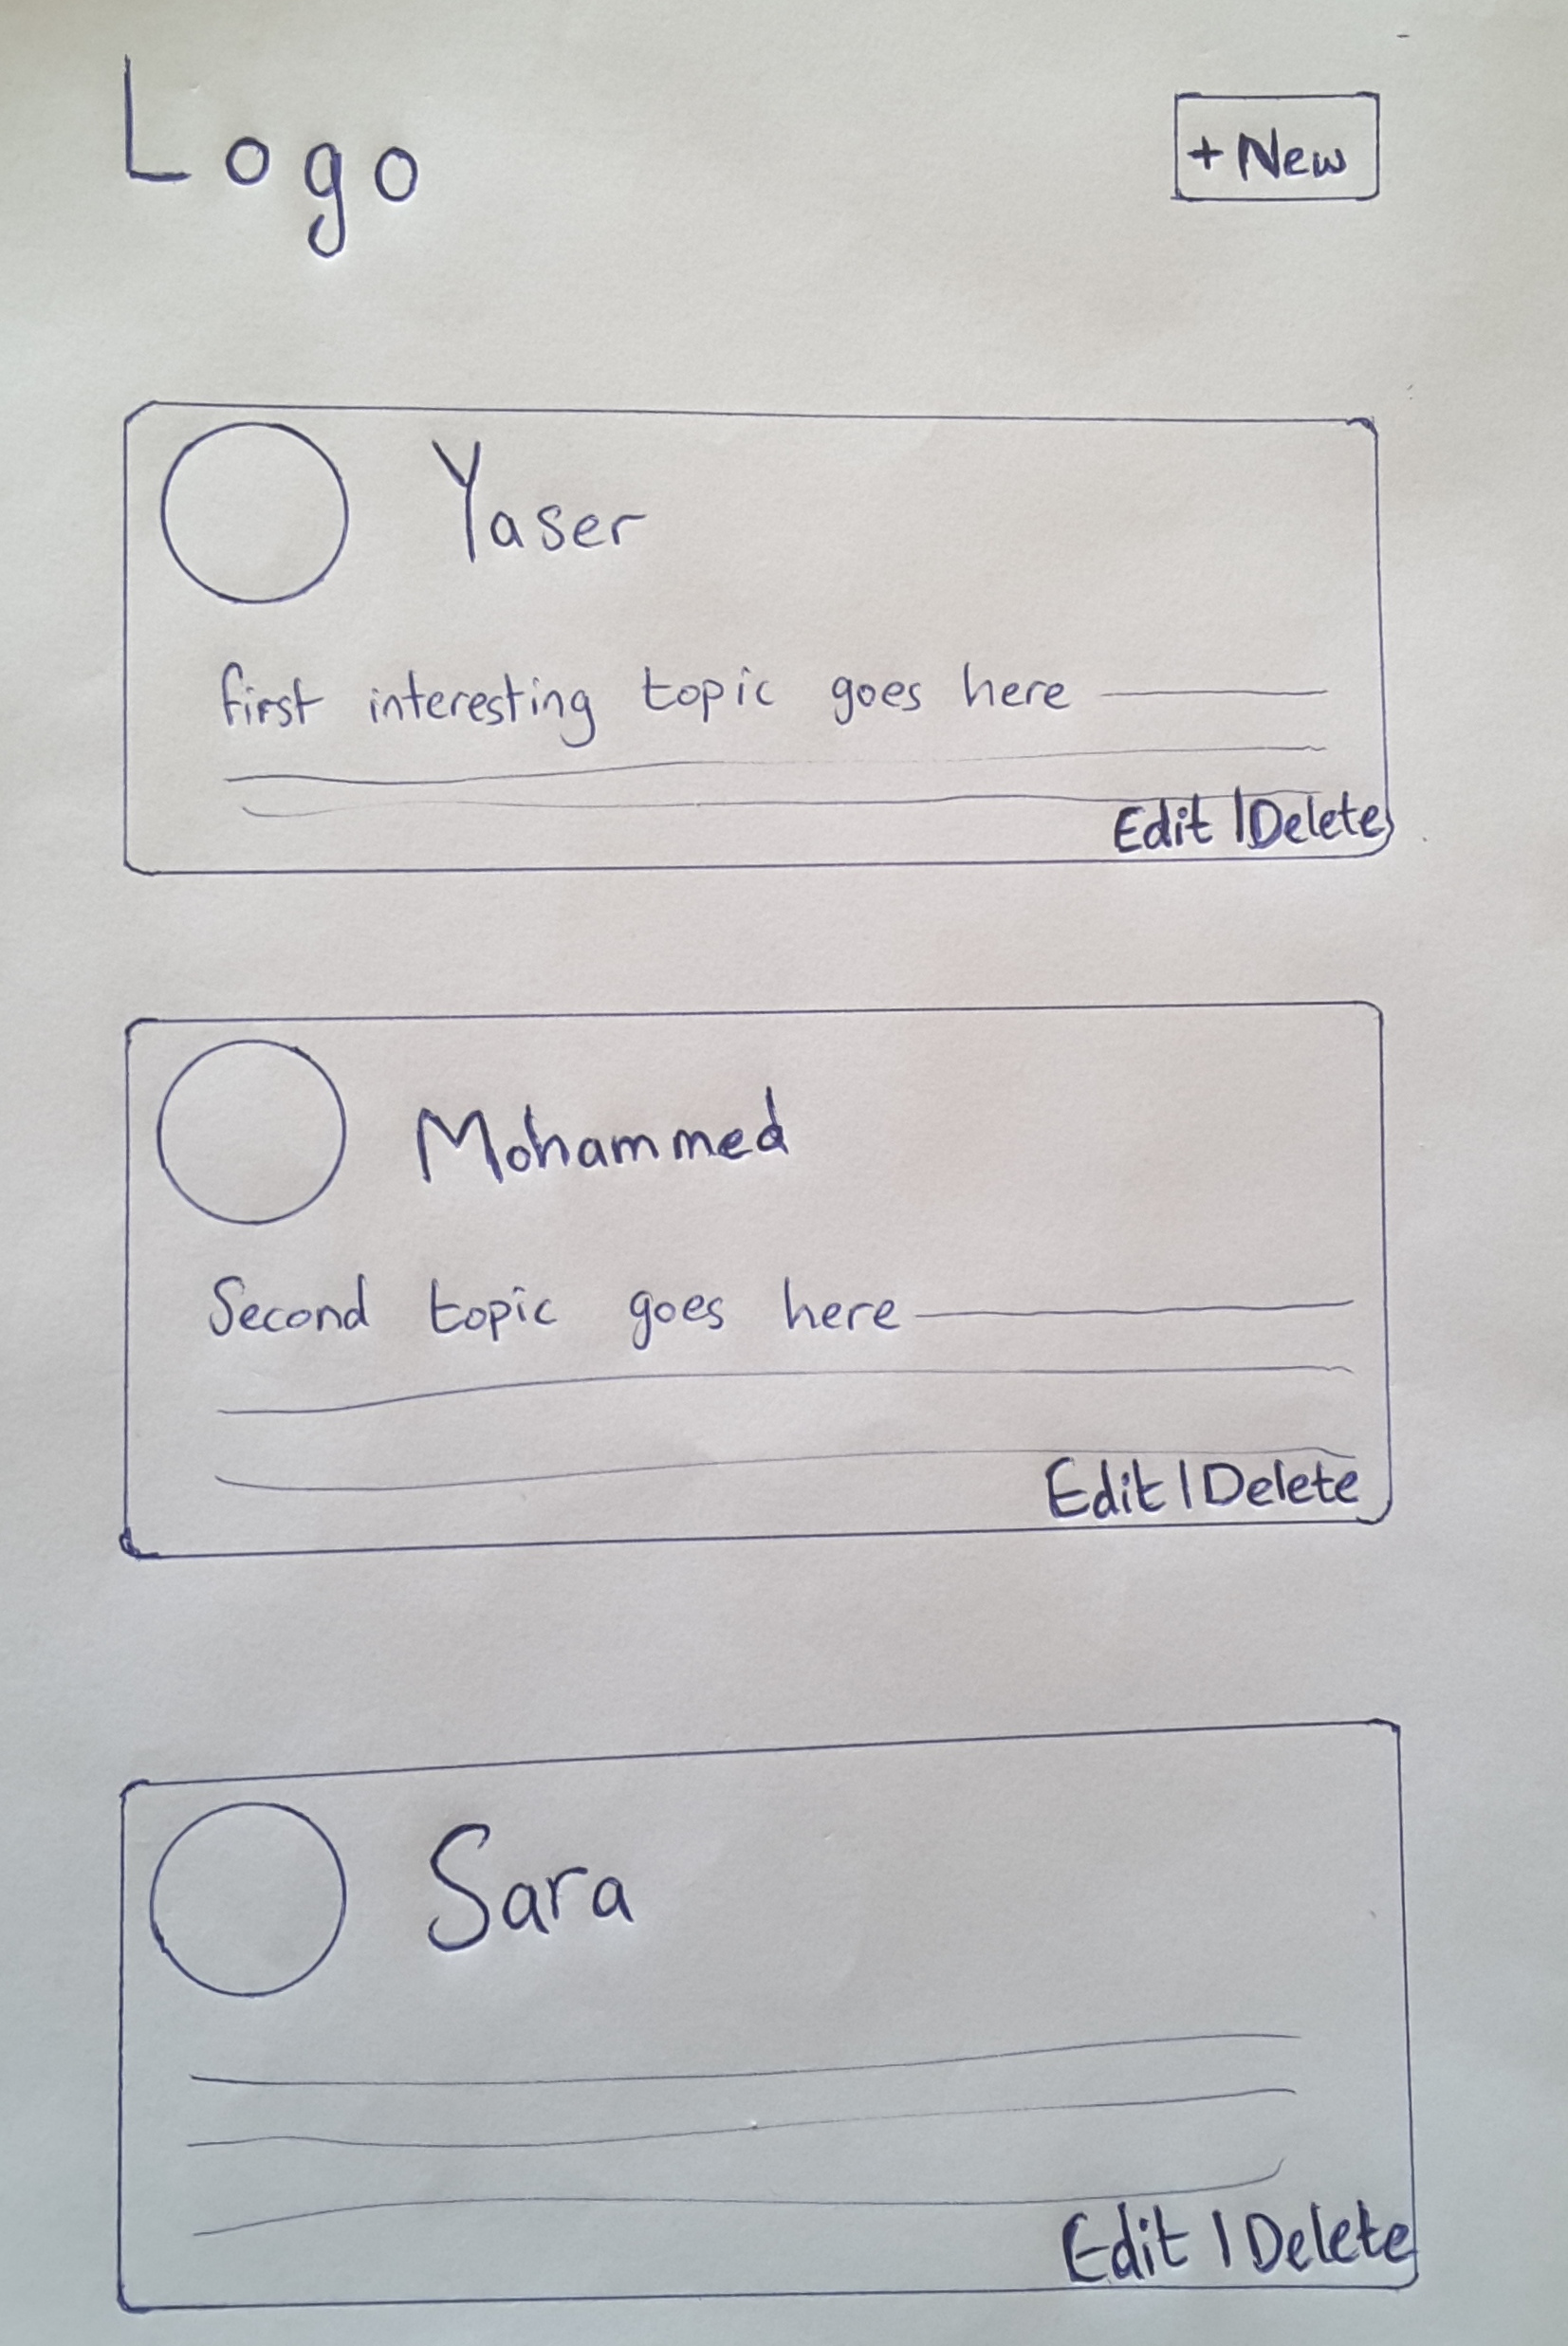 Logo
+ New
Yaser
first interesting topic goes here
Edit | Delete
Mohammed
Second topic goes here
Edit | Delete
Sara
Edit | Delete